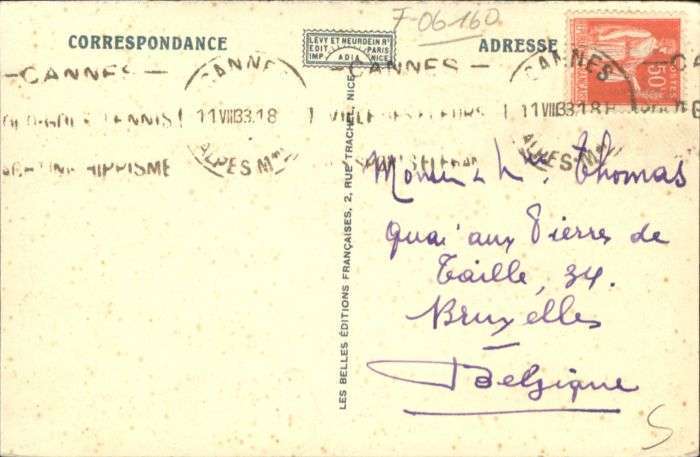 F-06160
CORRESPONDANCE
LEVY ET NEURDEIN Rs
EDIT PARIS
IMP. ADIA NICE
ADRESSE
50c
POSTES
CANNES
CANNES
CANNES
11 VIII 33.18
11 VIII 33.18
GOLF TENNIS
VILLE DES FLEURS
HIPPISME
ALPES Mmes
ALPES Mmes
LES BELLES ÉDITIONS FRANÇAISES, 2, RUE TRACHEL, NICE
Thomas
Quai aux Pierres de
Taille, 34.
Bruxelles
Belgique
5